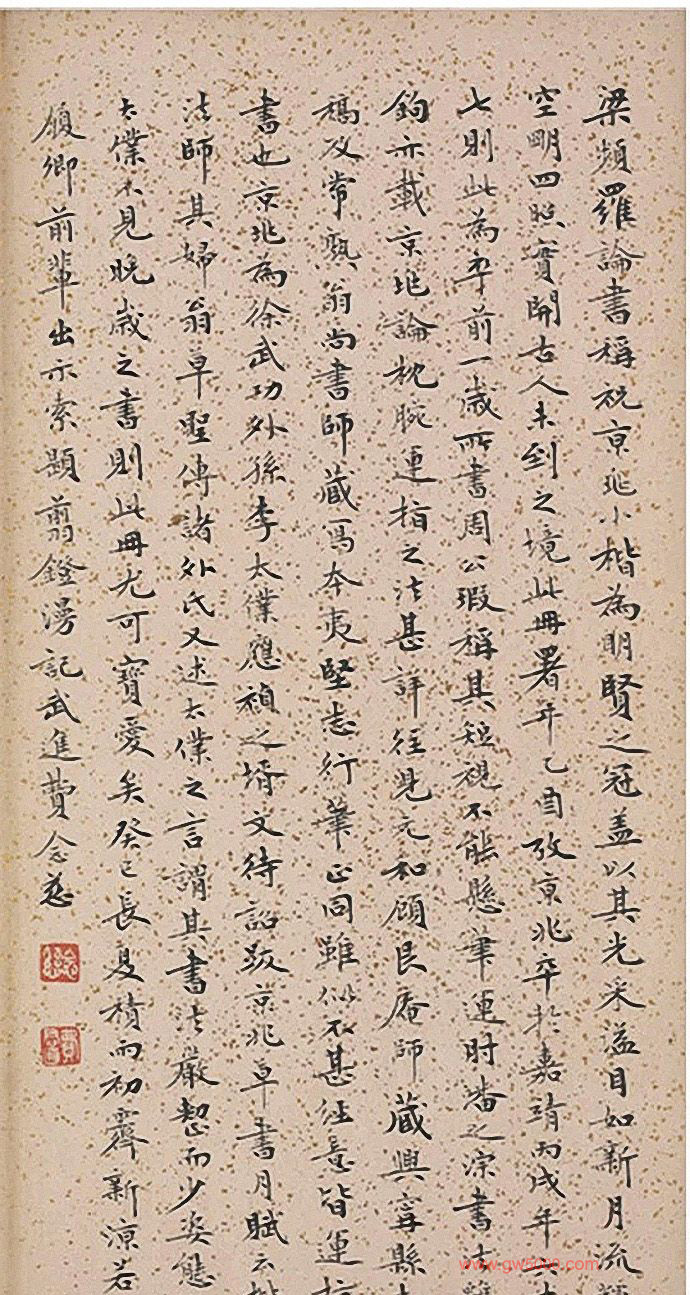 梁頻羅論書稱祝京兆小楷為明賢之冠蓋以其光采溢目如新月流
空明四照實開古人未到之境此冊署年乙酉攷京兆卒於嘉靖丙戌年六十
七則此為卒前一歲所書周公瑕稱其短視不能懸筆運時番之淙書
鉤亦載京兆論枕腕運指之法甚詳往見元和顧艮庵師藏興寧縣
稿及常熟翁尚書師藏寫本夷堅志行筆正同雖似不甚經意皆運
書也京兆為徐武功外孫李太僕應禎之壻文待詔跋京兆草書月賦云
法師其婦翁草聖傳諸外氏又述太僕之言謂其書法嚴整而少姿態
太僕不見晚歲之書則此冊尤可寶愛矣癸巳長夏積雨初霽新涼若
頌卿前輩出示索題剪鐙漫記武進費念慈
www.gw5000.com